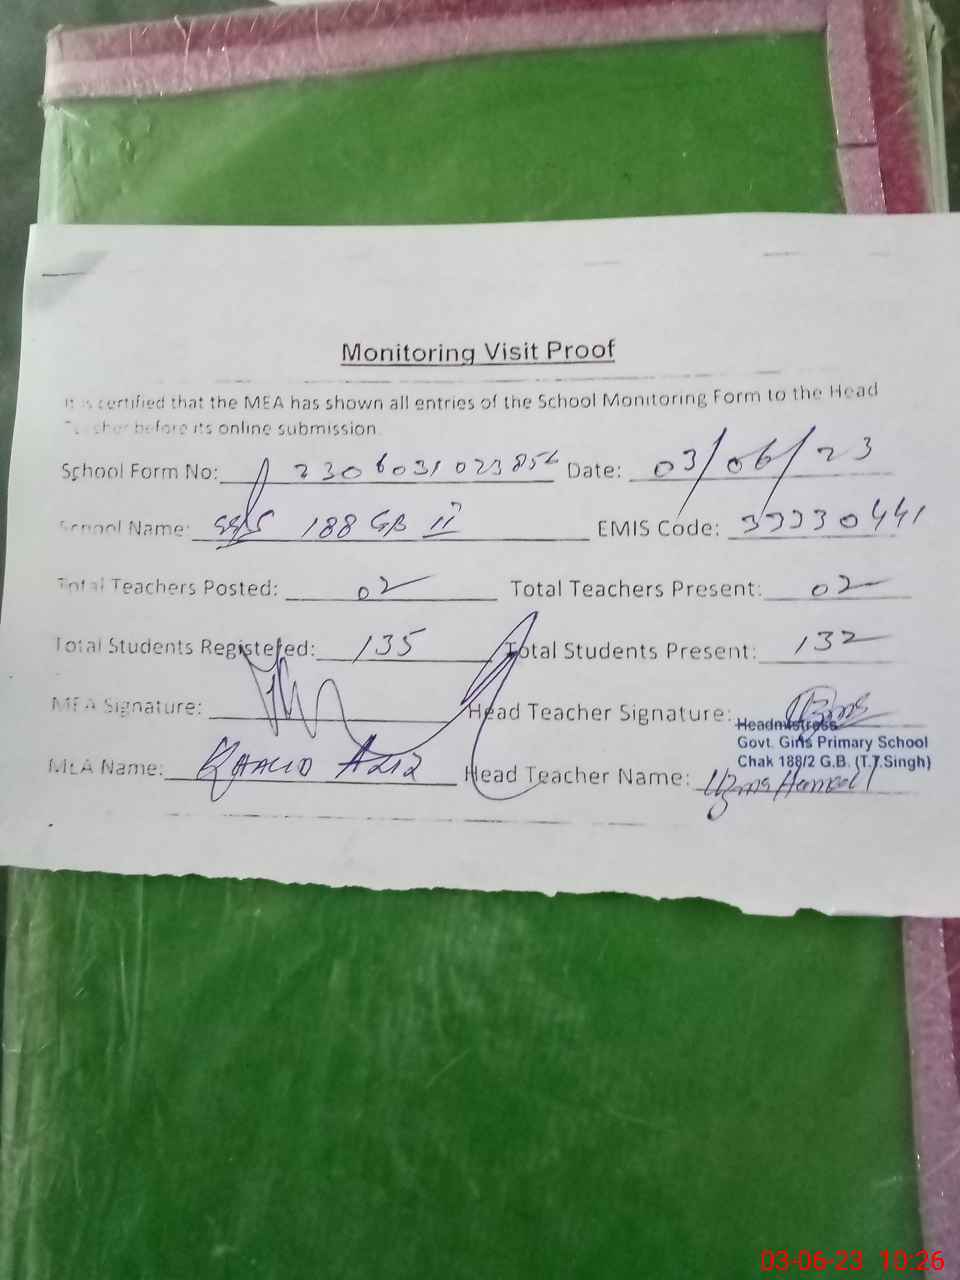 Monitoring Visit Proof
It is certified that the MEA has shown all entries of the School Monitoring Form to the Head
Teacher before its online submission.
School Form No: 2306031023856 Date: 03/06/23
School Name: 188 GB II EMIS Code: 33330441
Total Teachers Posted: 02 Total Teachers Present: 02
Total Students Registered: 135 Total Students Present: 132
MEA Signature: Head Teacher Signature:
Headmistress
Govt. Girls Primary School
Chak 188/2 G.B. (T.T.Singh)
MEA Name: KHALID AZIZ Head Teacher Name: Uzma
03-06-23 10:26